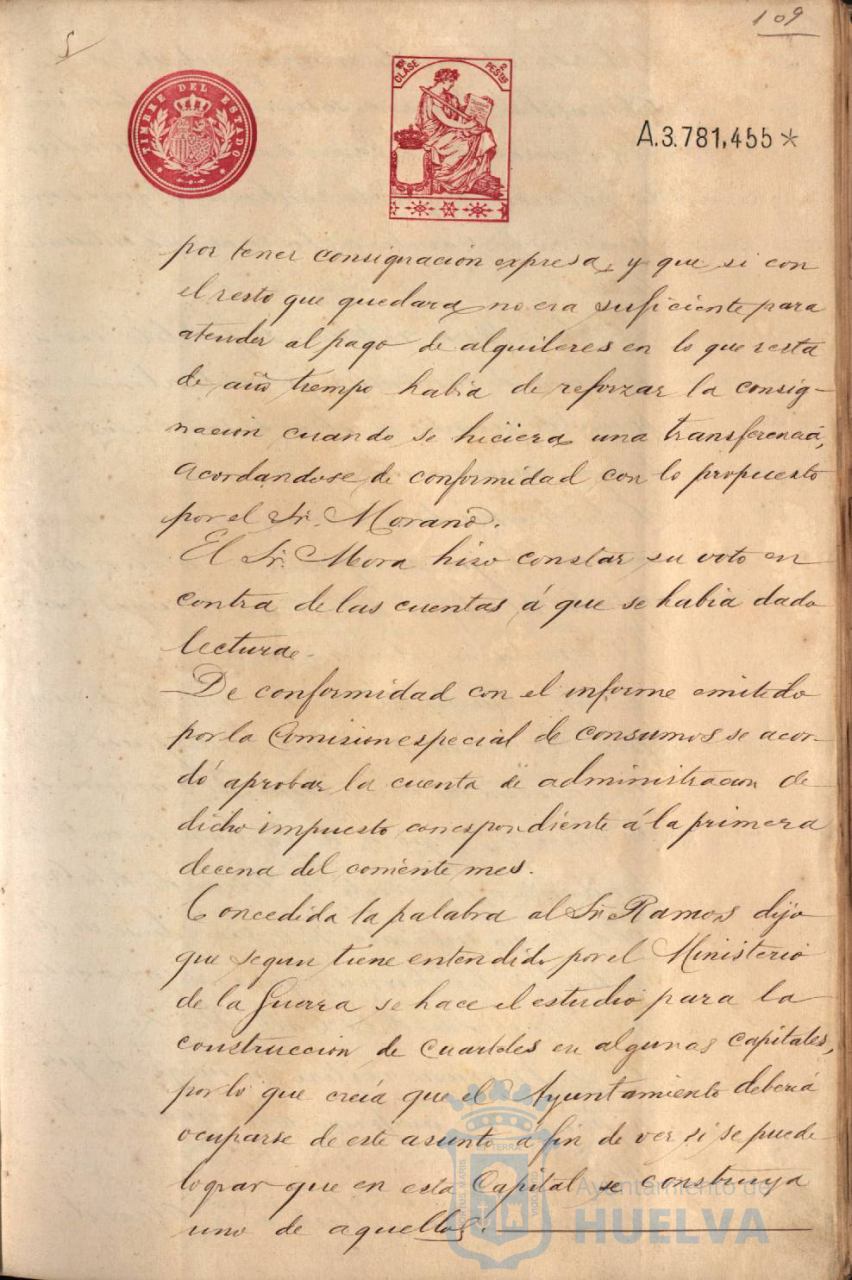 109
TIMBRE DEL ESTADO
CLASE
2 PESTAS
A.3.781,455*
por tener consignación expresa, y que si con
el resto que quedara no era suficiente para
atender al pago de alquileres en lo que resta
de año tiempo habia de reforzar la consig-
nación cuando se hiciera una transferencia,
acordandose de conformidad con lo propuesto
por el Sr. Morano.
El Sr. Mora hiso constar su voto en
contra de las cuentas á que se habia dado
lectura.
De conformidad con el informe emitido
por la Comision especial de consumos se acor-
dó aprobar la cuenta de administracion de
dicho impuesto correspondiente á la primera
decena del corriente mes.
Concedida la palabra al Sr. Ramos dijo
que segun tiene entendido por el Ministerio
de la Guerra se hace el estudio para la
construccion de Cuarteles en algunas capitales,
por lo que creía que el Ayuntamiento deberia
ocuparse de este asunto á fin de ver si se puede
lograr que en esta Capital se construya
uno de aquellos.
Ayuntamiento de
HUELVA